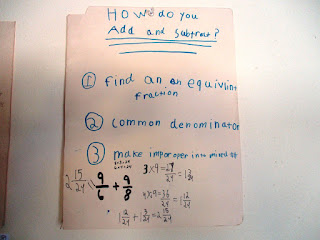 How do you
Add and Subtract?
① find an an equivlint
fraction
② common denominator
③ make improper into mixed #
2 15/24 9/6 + 9/8
3×9=27/24=1 3/24
4×9=36/24=1 12/24
1 12/24 + 1 3/24 = 2 15/24